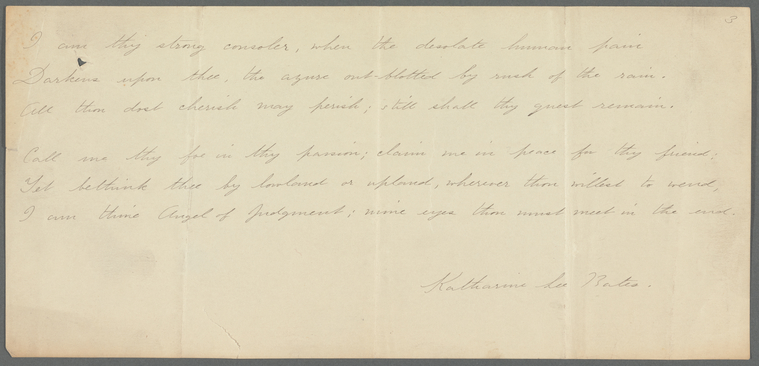 3
I am thy strong consoler, when the desolate human pain
Darkens upon thee, the azure out-blotted by rush of the rain.
All thou dost cherish may perish; still shall thy quest remain.
Call me thy foe in thy passion; claim me in peace for thy friend;
Yet bethink thee by lowland or upland, wherever thou willest to wend,
I am thine Angel of Judgment; mine eyes thou must meet in the end.
Katharine Lee Bates.